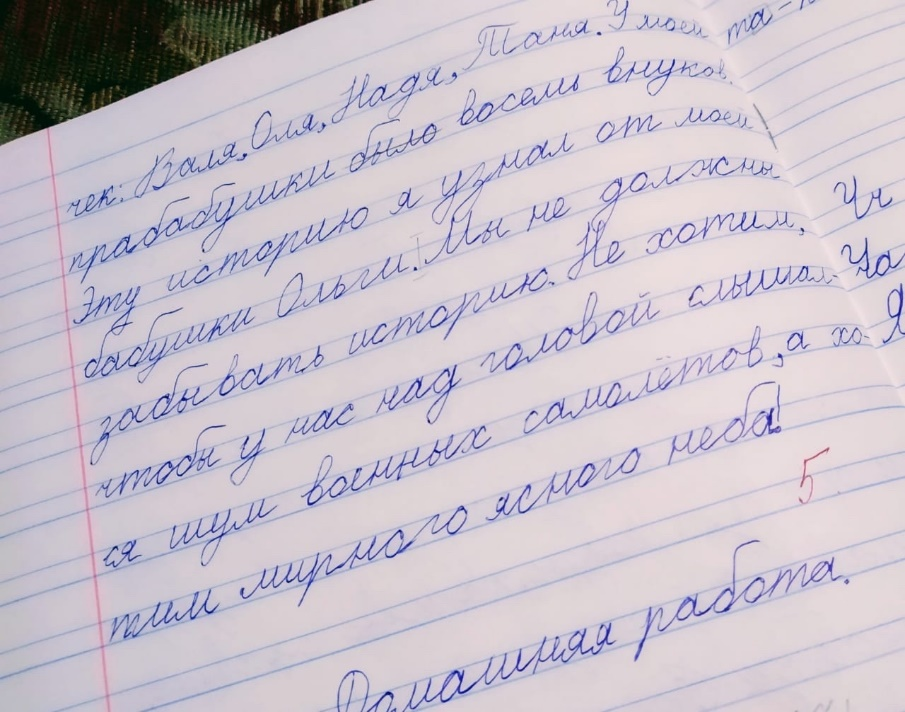 чек: Валя, Оля, Надя, Таня. У моей
прабабушки было восемь внуков.
Эту историю я узнал от моей
бабушки Ольги. Мы не должны
забывать историю. Не хотим,
чтобы у нас над головой слышал-
ся шум военных самолётов, а хо-
тим мирного ясного неба!
5
Домашняя работа.